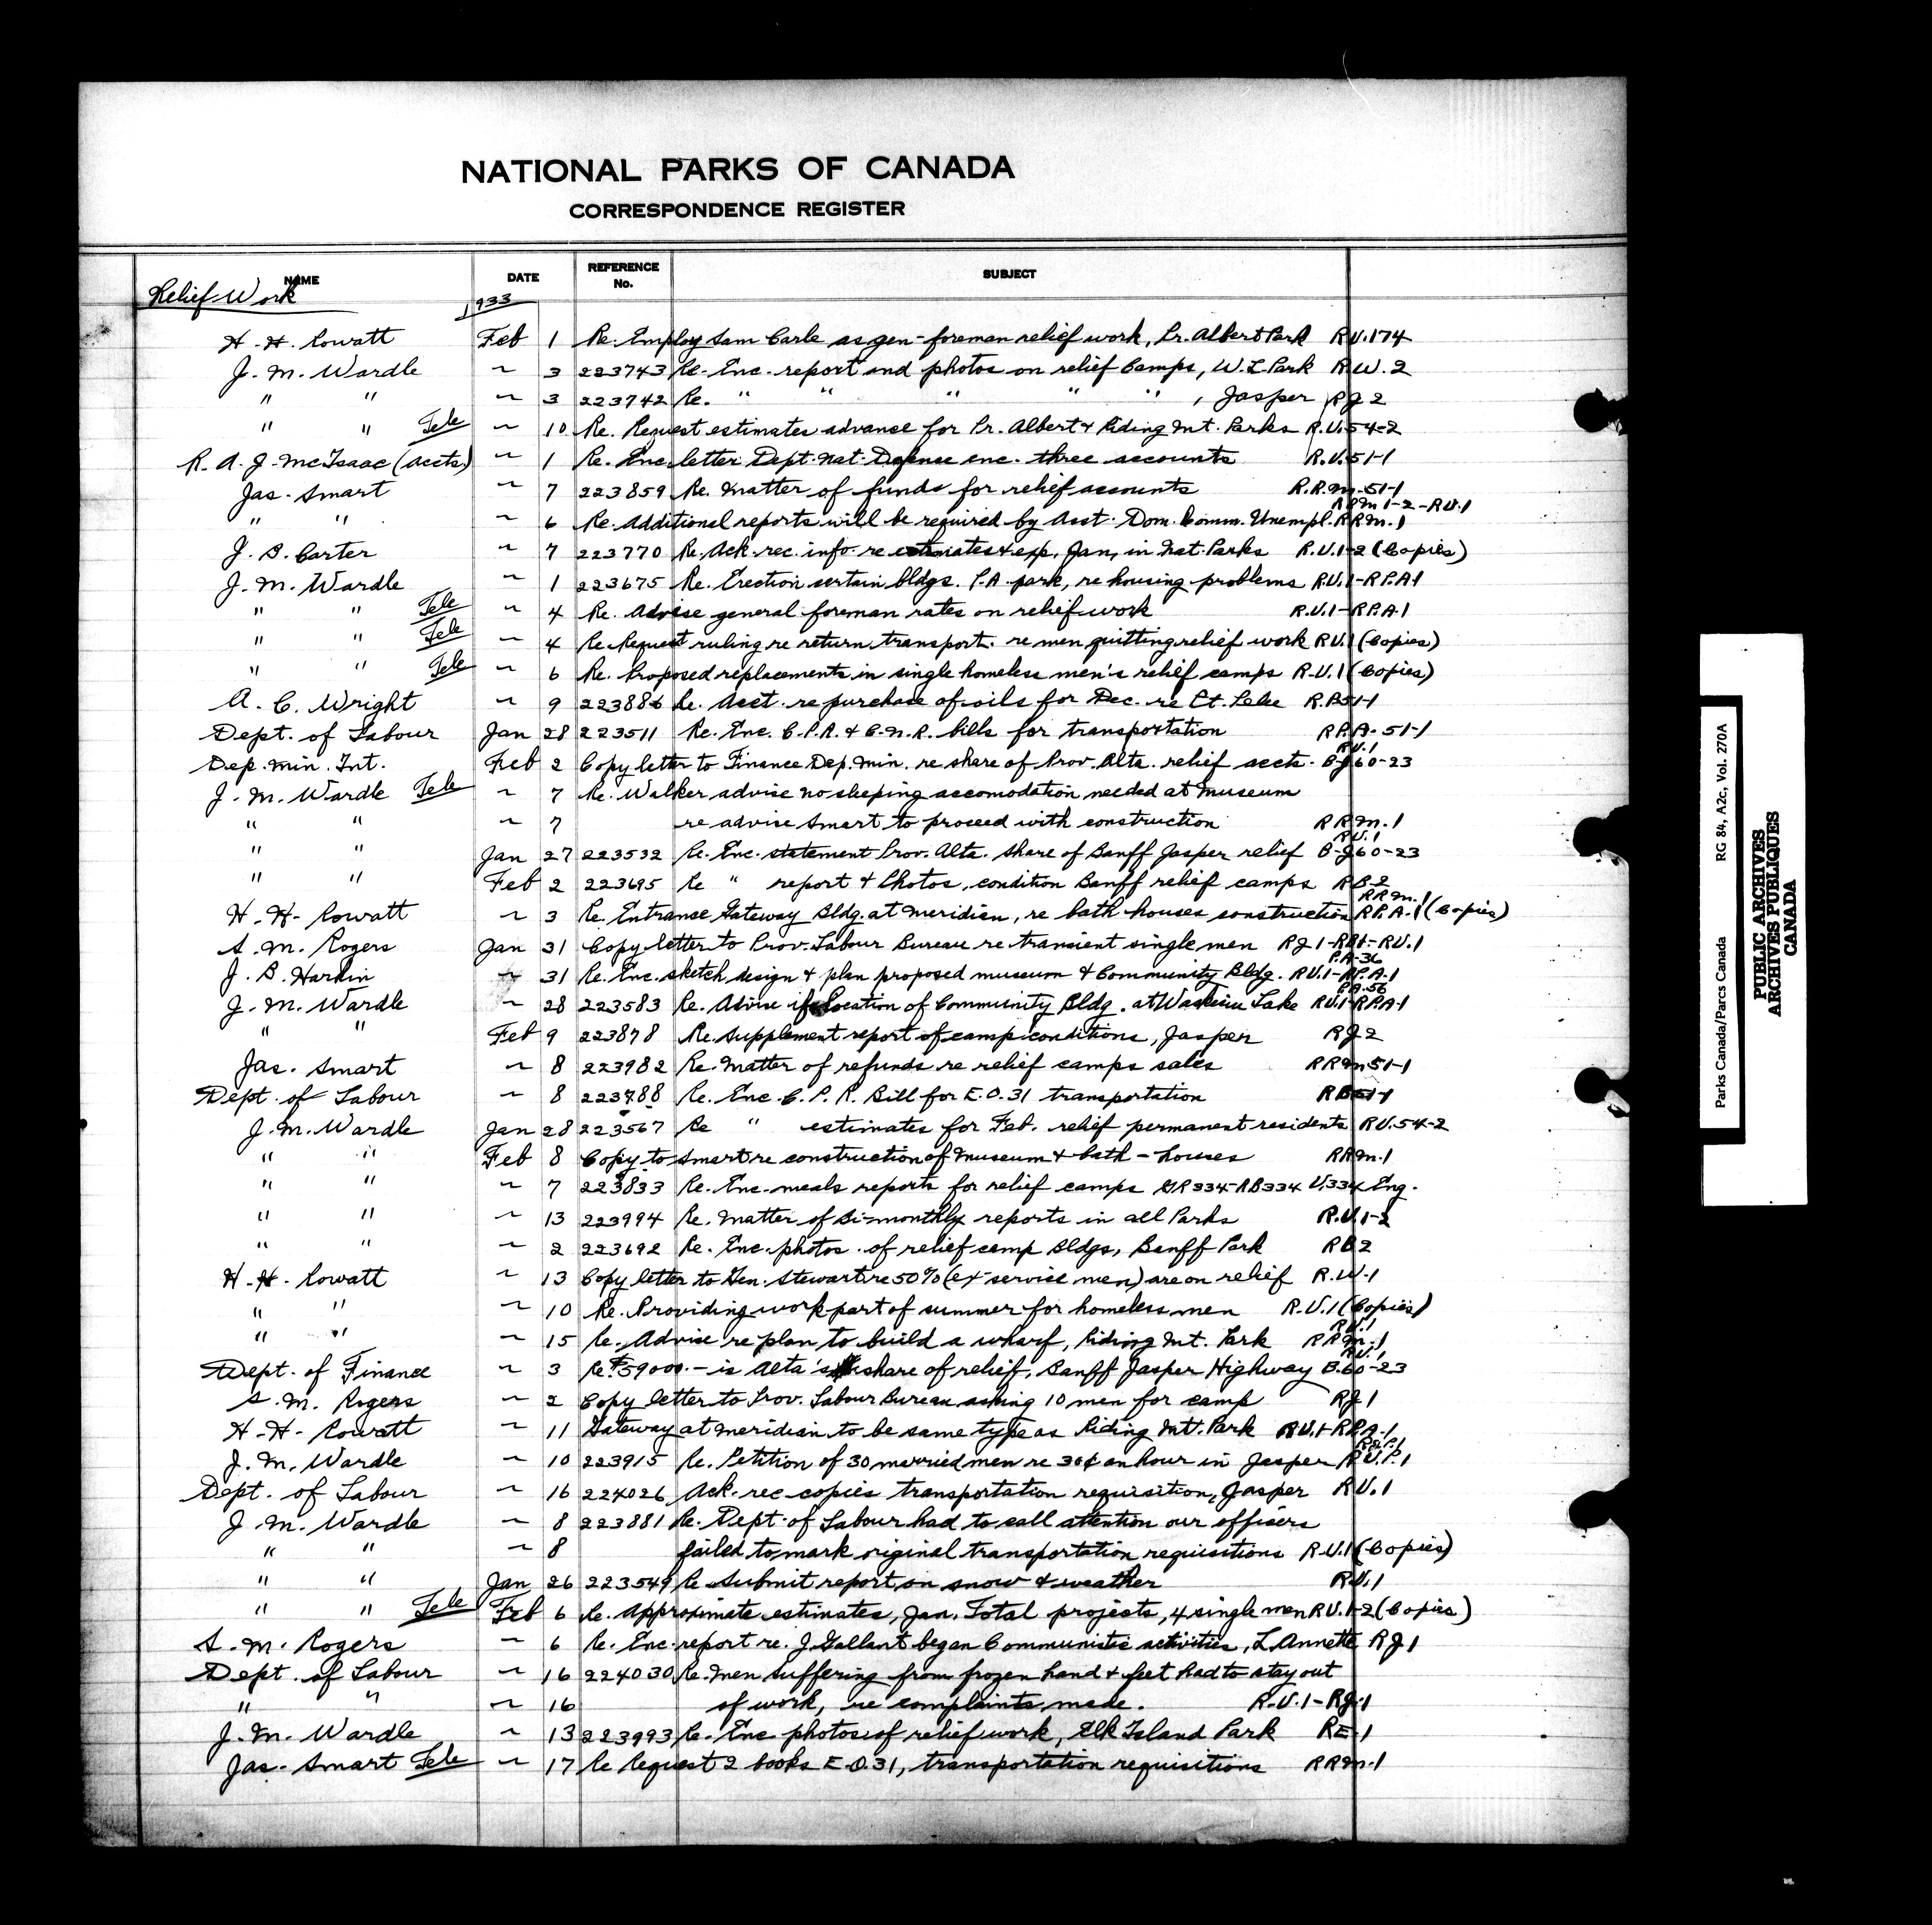 NATIONAL PARKS OF CANADA
CORRESPONDENCE REGISTER
NAME DATE REFERENCE No. SUBJECT
Relief Work 1933
H. H. Rowatt Feb 1 Re. Employ Sam Carle as gen-foreman relief work, Pr. Albert Park RU.174
J. M. Wardle ~ 3 223743 Re. Enc. report and photos on relief Camps, W. L Park RW.2
" " ~ 3 223742 Re. " " " " " , Jasper RJ2
" " Tele ~ 10 Re. Request estimates advance for Pr. Albert & Riding Mt. Parks R.U.54-2
R. A. J. McIsaac (Accts) ~ 1 Re. Enc. letter Dept. Nat. Defence enc. three accounts R.U.51-1
Jas. Smart ~ 7 223859 Re. Matter of funds for relief accounts R.R.M.51-1
" " ~ 6 Re. Additional reports will be required by Asst. Dom. Comm. Unempl. RRM.1 RRM1-2-RU.1
J. B. Carter ~ 7 223770 Re. Ack. rec. info. re estimates & exp. Jan, in Nat. Parks R.U.1-2 (Copies)
J. M. Wardle ~ 1 223675 Re. Erection certain bldgs. P.A. park, re housing problems RU.1-RP.A1
" " Tele ~ 4 Re. Advise general foreman rates on relief work R.U.1-RP.A.1
" " Tele ~ 4 Re. Request ruling re return transport. re men quitting relief work RU.1 (Copies)
" " Tele ~ 6 Re. Proposed replacements in single homeless men's relief camps R.U.1 (Copies)
A. C. Wright ~ 9 223886 Re. Acct. re purchase of oils for Dec. re Pt. Pelee R.P.51-1
Dept. of Labour Jan 28 223511 Re. Enc. C.P.R. & C.N.R. bills for transportation RP.A.51-1
Dep. Min. Int. Feb 2 Copy letter to Finance Dep. Min. re share of Prov. Alta. relief accts. B-J60-23 RU.1
J. M. Wardle Tele ~ 7 Re. Walker advise no sleeping accomodation needed at Museum
" " ~ 7 re advise Smart to proceed with construction RRM.1
" " Jan 27 223532 Re. Enc. statement Prov. Alta. share of Banff Jasper relief B-J60-23 RU.1
" " Feb 2 223695 Re " report & Photos, condition Banff relief camps RB.2
H. H. Rowatt ~ 3 Re. Entrance Gateway Bldg. at Meridian, re bath houses construction RP.A.1 (Copies) RRM.1
S. M. Rogers Jan 31 Copy letter to Prov. Labour Bureau re transient single men RJ1-RB1-RU.1
J. B. Harkin ~ 31 Re. Enc. sketch design & plan proposed museum & Community Bldg. RU.1-RP.A.1 P.A-36
J. M. Wardle ~ 28 223583 Re. Advise if location of Community Bldg. at Waskesiu Lake RU.1-RP.A.1 PA.56
" " Feb 9 223878 Re. Supplement report of camp conditions, Jasper RJ2
Jas. Smart ~ 8 223982 Re. Matter of refunds re relief camps sales RRM51-1
Dept. of Labour ~ 8 223788 Re. Enc. C. P. R. Bill for E.O.31 transportation RB51-1
J. M. Wardle Jan 28 223567 Re " estimates for Feb. relief permanent residents RU.54-2
" " Feb 8 Copy to Smart re construction of Museum & bath-houses RRM.1
" " ~ 7 223833 Re. Enc. meals reports for relief camps GR334-RB334 U334 Eng.
" " ~ 13 223994 Re. Matter of Bi-monthly reports in all Parks R.U.1-2
" " ~ 2 223692 Re. Enc. photos. of relief camp Bldgs, Banff Park RB2
H. H. Rowatt ~ 13 Copy letter to Gen. Stewart re 50% (ex service men) are on relief R.W.1
" " ~ 10 Re. Providing work part of summer for homeless men R.U.1 (Copies)
" " ~ 15 Re. Advise re plan to build a wharf, Riding Mt. Park RRM.1 RU.1
Dept. of Finance ~ 3 Re $59000.- is Alta's share of relief, Banff Jasper Highway B.60-23 RU.1
S. M. Rogers ~ 2 Copy letter to Prov. Labour Bureau asking 10 men for camp RJ1
H. H. Rowatt ~ 11 Gateway at Meridian to be same type as Riding Mt. Park RU.1-RP.A.1
J. M. Wardle ~ 10 223915 Re. Petition of 30 married men re 30¢ an hour in Jasper RU.P.1
Dept. of Labour ~ 16 224026 Ack. rec copies transportation requisition, Jasper RU.1
J. M. Wardle ~ 8 223881 Re. Dept. of Labour had to call attention our officers
" " ~ 8 failed to mark original transportation requisitions R.U.1 (Copies)
" " Jan 26 223549 Re Submit report on snow & weather RU.1
" " Tele Feb 6 Re. Approximate estimates, Jan. Total projects, 4 single men RU.1-2 (Copies)
S. M. Rogers ~ 6 Re. Enc. report re. J Gallant began Communistic activities, L. Annette RJ1
Dept. of Labour ~ 16 224030 Re. Men suffering from frozen hand & feet had to stay out
" " ~ 16 of work, re complaints made. R.U.1-RJ.1
J. M. Wardle ~ 13 223993 Re. Enc photos of relief work, Elk Island Park RE.1
Jas. Smart Tele ~ 17 Re Request 2 books E.O.31, transportation requisitions RRM.1
Parks Canada/Parcs Canada RG 84, A2c, Vol. 270A
PUBLIC ARCHIVES
ARCHIVES PUBLIQUES
CANADA